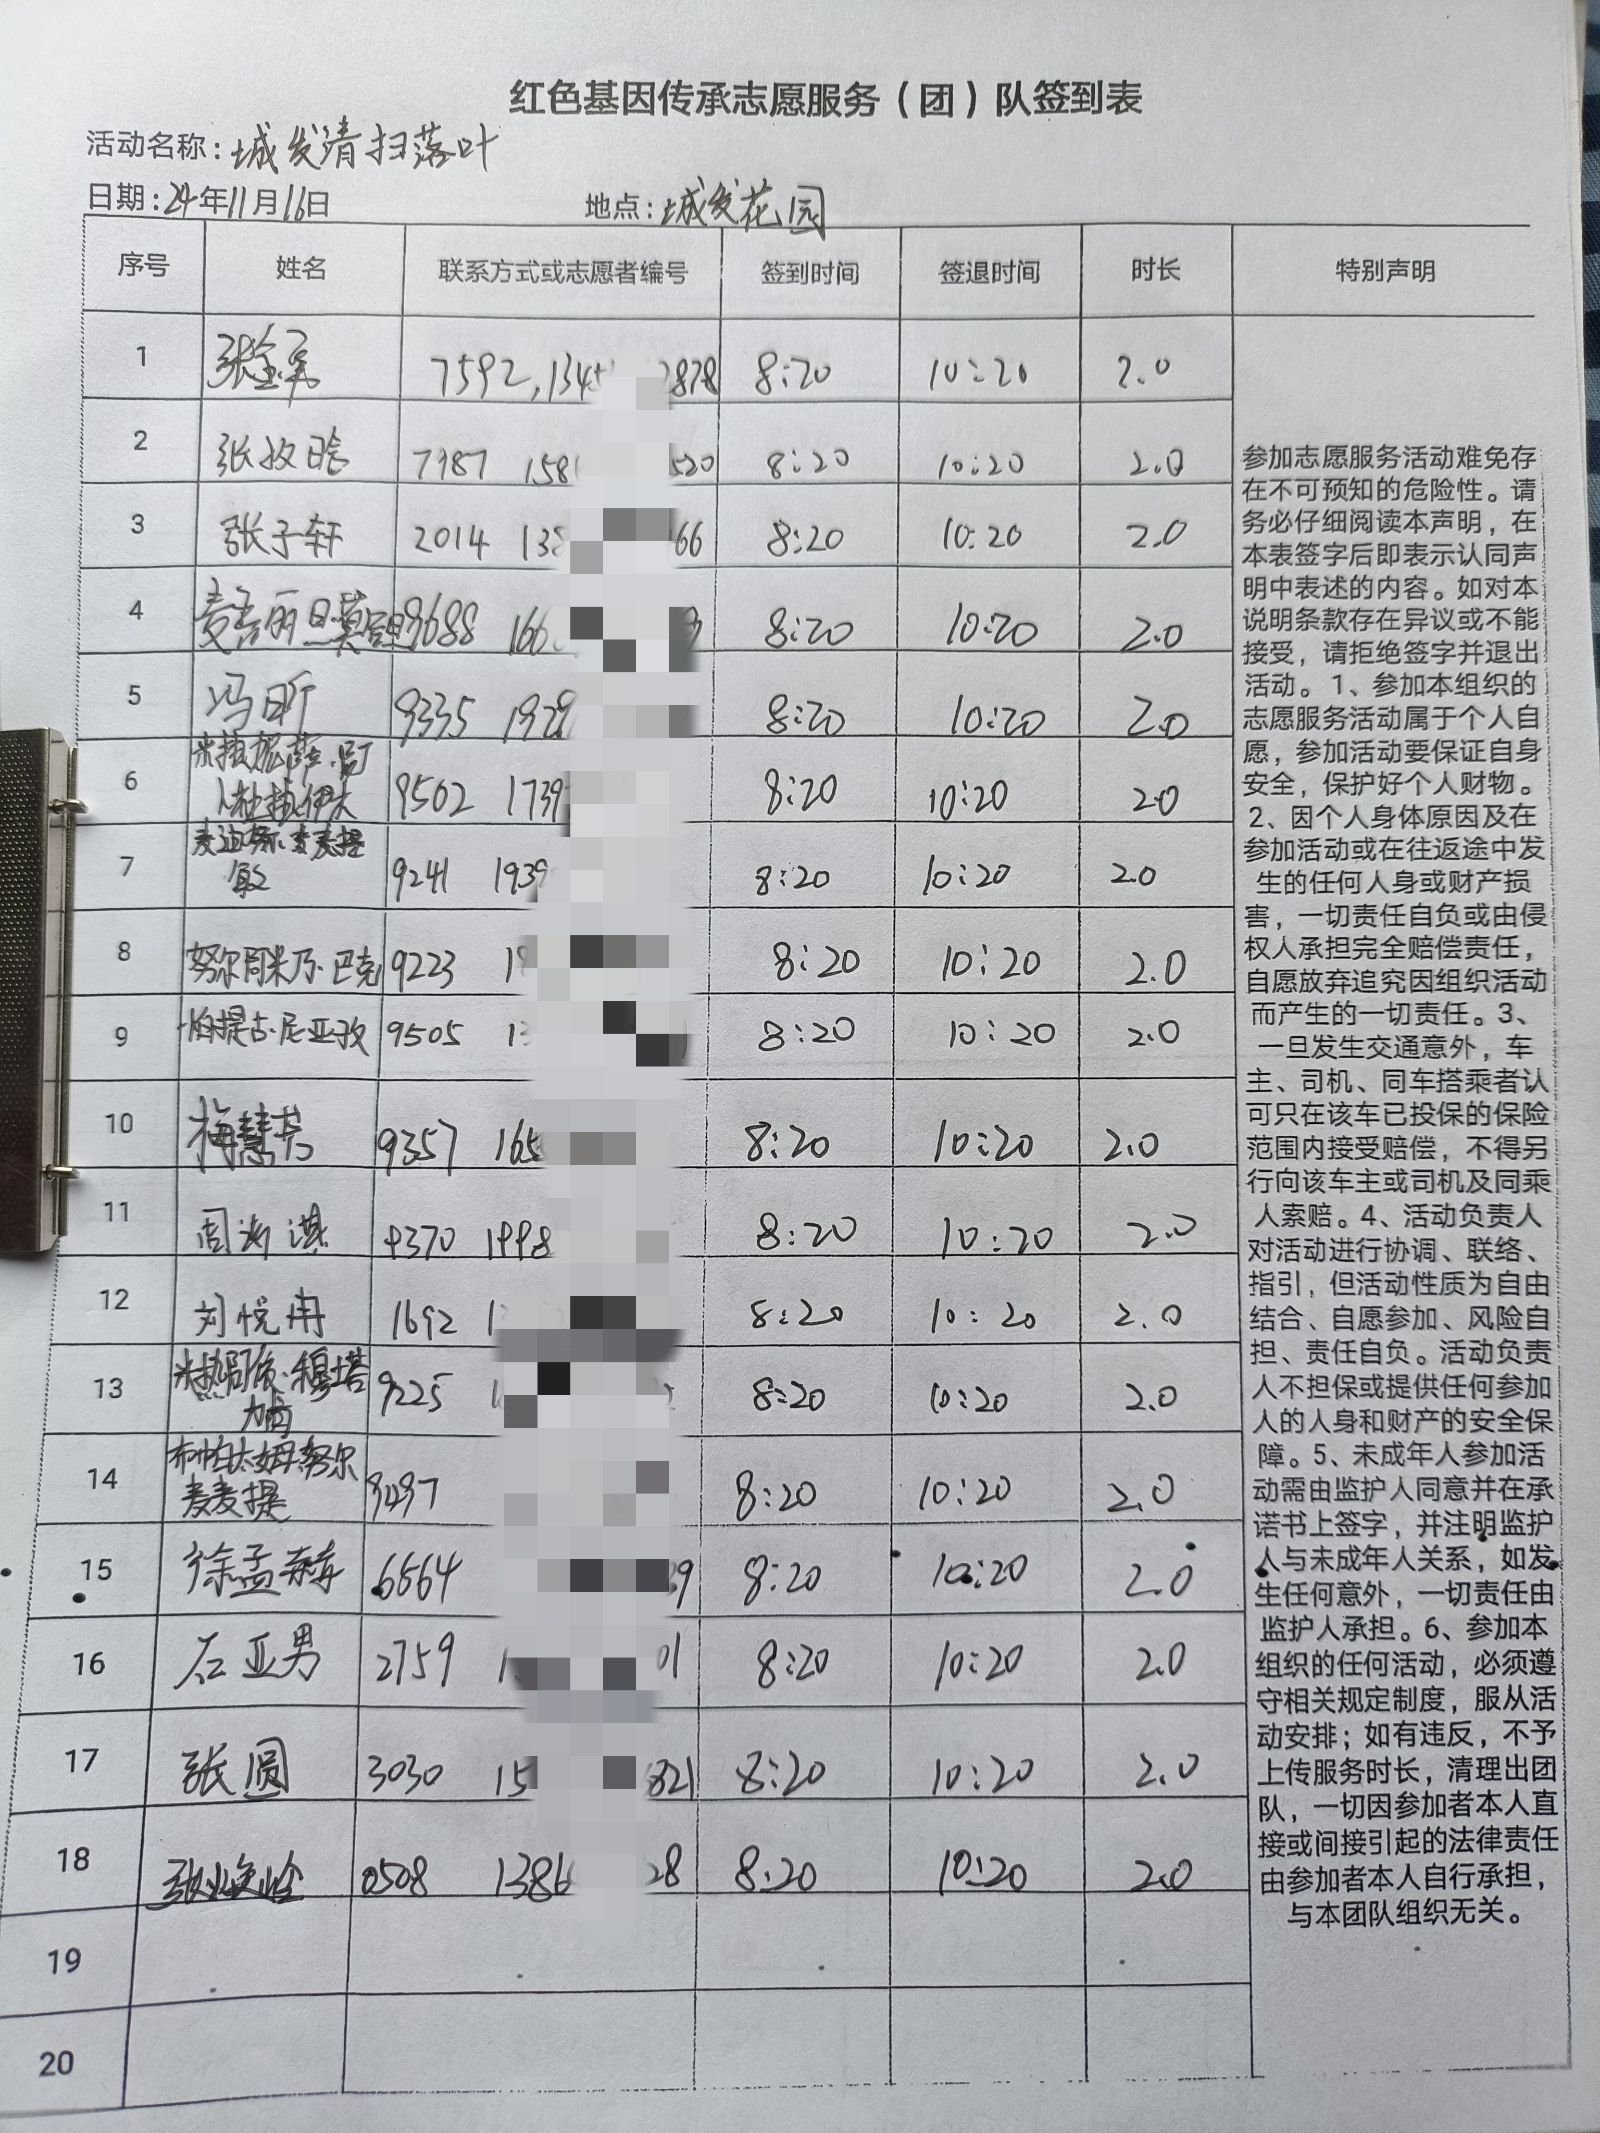 红色基因传承志愿服务（团）队签到表
活动名称：城发清扫落叶
日期：24年11月16日 地点：城发花园
序号 姓名 联系方式或志愿者编号 签到时间 签退时间 时长 特别声明
1 7592,1345 2878 8:20 10:20 2.0
2 7987 158 520 8:20 10:20 2.0
3 张子轩 2014 138 66 8:20 10:20 2.0
4 9688 166 8:20 10:20 2.0
5 冯昕 9335 1929 8:20 10:20 2.0
6 9502 1739 8:20 10:20 2.0
7 9241 1939 8:20 10:20 2.0
8 9223 8:20 10:20 2.0
9 9505 13 8:20 10:20 2.0
10 梅慧芳 9357 165 8:20 10:20 2.0
11 9370 1998 8:20 10:20 2.0
12 刘悦冉 1692 8:20 10:20 2.0
13 9225 8:20 10:20 2.0
14 9497 8:20 10:20 2.0
15 徐孟赫 6664 39 8:20 10:20 2.0
16 石亚男 2759 01 8:20 10:20 2.0
17 张圆 3030 15 821 8:20 10:20 2.0
18 0508 1386 28 8:20 10:20 2.0
19
20
参加志愿服务活动难免存
在不可预知的危险性。请
务必仔细阅读本声明，在
本表签字后即表示认同声
明中表述的内容。如对本
说明条款存在异议或不能
接受，请拒绝签字并退出
活动。1、参加本组织的
志愿服务活动属于个人自
愿，参加活动要保证自身
安全，保护好个人财物。
2、因个人身体原因及在
参加活动或在往返途中发
生的任何人身或财产损
害，一切责任自负或由侵
权人承担完全赔偿责任，
自愿放弃追究因组织活动
而产生的一切责任。3、
一旦发生交通意外，车
主、司机、同车搭乘者认
可只在该车已投保的保险
范围内接受赔偿，不得另
行向该车主或司机及同乘
人索赔。4、活动负责人
对活动进行协调、联络、
指引，但活动性质为自由
结合、自愿参加、风险自
担、责任自负。活动负责
人不担保或提供任何参加
人的人身和财产的安全保
障。5、未成年人参加活
动需由监护人同意并在承
诺书上签字，并注明监护
人与未成年人关系，如发
生任何意外，一切责任由
监护人承担。6、参加本
组织的任何活动，必须遵
守相关规定制度，服从活
动安排；如有违反，不予
上传服务时长，清理出团
队，一切因参加者本人直
接或间接引起的法律责任
由参加者本人自行承担，
与本团队组织无关。